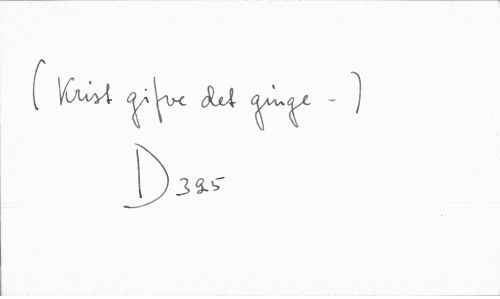 (Krist gifve det ginge -)
D 395